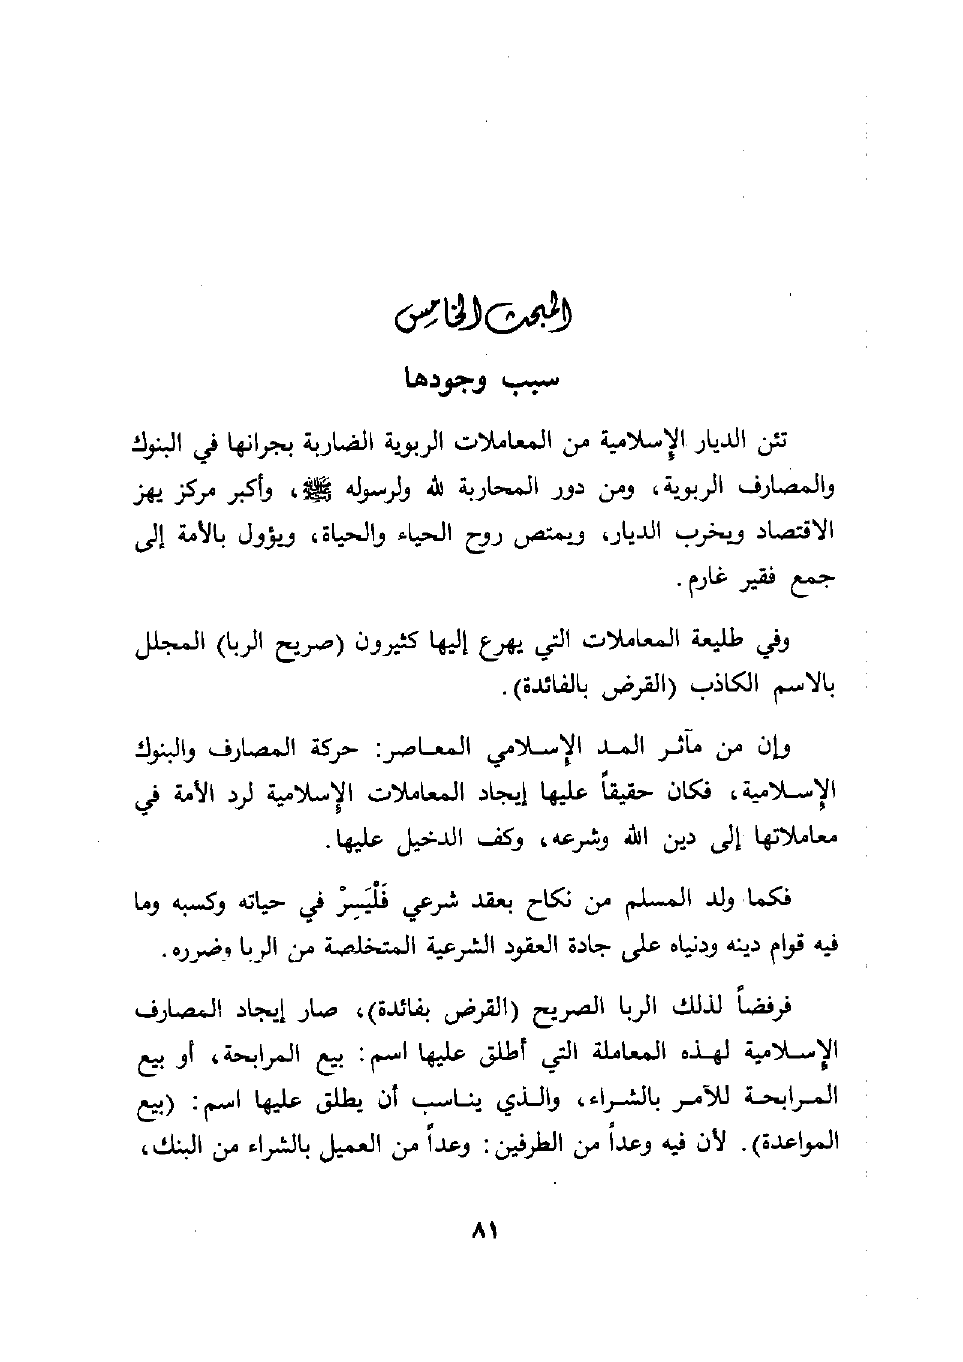 المبحث الخامس
سبب وجودها
تئن الديار الإسلامية من المعاملات الربوية الضاربة بجرانها في البنوك
والمصارف الربوية، ومن دور المحاربة لله ولرسوله ﷺ، وأكبر مركز يهز
الاقتصاد ويخرب الديار، ويمتص روح الحياء والحياة، ويؤول بالأمة إلى
جمع فقير غارم.
وفي طليعة المعاملات التي يهرع إليها كثيرون (صريح الربا) المجلل
بالاسم الكاذب (القرض بالفائدة).
وإن من مآثر المد الإسلامي المعاصر: حركة المصارف والبنوك
الإسلامية، فكان حقيقاً عليها إيجاد المعاملات الإسلامية لرد الأمة في
معاملاتها إلى دين الله وشرعه، وكف الدخيل عليها.
فكما ولد المسلم من نكاح بعقد شرعي فَلْيَسِرْ في حياته وكسبه وما
فيه قوام دينه ودنياه على جادة العقود الشرعية المتخلصة من الربا وضرره.
فرفضاً لذلك الربا الصريح (القرض بفائدة)، صار إيجاد المصارف
الإسلامية لهذه المعاملة التي أطلق عليها اسم: بيع المرابحة، أو بيع
المرابحة للآمر بالشراء، والذي يناسب أن يطلق عليها اسم: (بيع
المواعدة). لأن فيه وعداً من الطرفين: وعداً من العميل بالشراء من البنك،
٨١